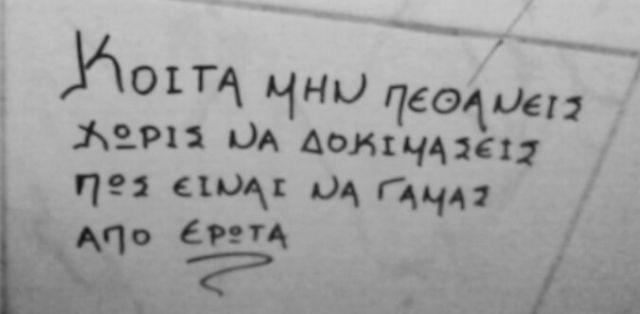 ΚΟΙΤΑ ΜΗΝ ΠΕΘΑΝΕΙΣ
ΧΩΡΙΣ ΝΑ ΔΟΚΙΜΑΣΕΙΣ
ΠΩΣ ΕΙΝΑΙ ΝΑ ΓΑΜΑΣ
ΑΠΟ ΕΡΩΤΑ